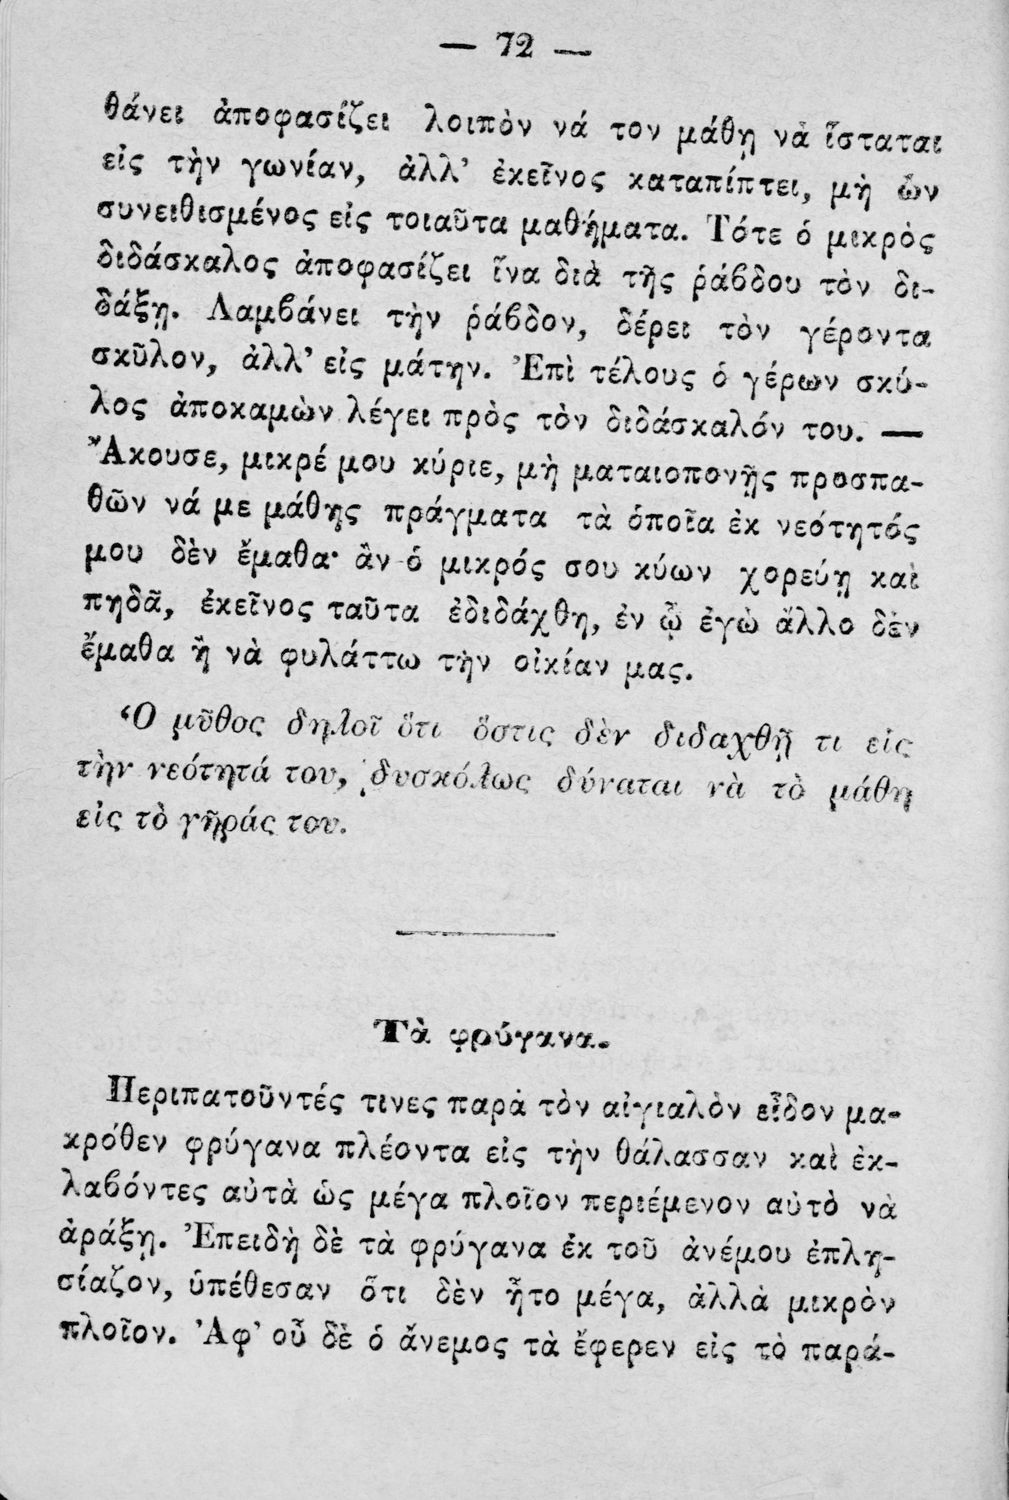 — 72 —
θάνει ἀποφασίζει λοιπὸν νά τον μάθῃ νὰ ἵσταται
εἰς τὴν γωνίαν, ἀλλ' ἐκεῖνος καταπίπτει, μὴ ὢν
συνειθισμένος εἰς τοιαῦτα μαθήματα. Τότε ὁ μικρὸς
διδάσκαλος ἀποφασίζει ἵνα διὰ τῆς ῥάβδου τὸν δι-
δάξῃ. Λαμβάνει τὴν ῥάβδον, δέρει τὸν γέροντα
σκῦλον, ἀλλ' εἰς μάτην. Ἐπὶ τέλους ὁ γέρων σκύ-
λος ἀποκαμὼν λέγει πρὸς τὸν διδάσκαλόν του. —
Ἄκουσε, μικρέ μου κύριε, μὴ ματαιοπονῇς προσπα-
θῶν νά με μάθῃς πράγματα τὰ ὁποῖα ἐκ νεότητός
μου δὲν ἔμαθα· ἂν ὁ μικρός σου κύων χορεύῃ καὶ
πηδᾷ, ἐκεῖνος ταῦτα ἐδιδάχθη, ἐν ᾧ ἐγὼ ἄλλο δὲν
ἔμαθα ἢ νὰ φυλάττω τὴν οἰκίαν μας.
Ὁ μῦθος δηλοῖ ὅτι ὅστις δὲν διδαχθῇ τι εἰς
τὴν νεότητά του, δυσκόλως δύναται νὰ τὸ μάθῃ
εἰς τὸ γῆράς του.
Τὰ φρύγανα.
Περιπατοῦντές τινες παρὰ τὸν αἰγιαλὸν εἶδον μα-
κρόθεν φρύγανα πλέοντα εἰς τὴν θάλασσαν καὶ ἐκ-
λαβόντες αὐτὰ ὡς μέγα πλοῖον περιέμενον αὐτὸ νὰ
ἀράξῃ. Ἐπειδὴ δὲ τὰ φρύγανα ἐκ τοῦ ἀνέμου ἐπλη-
σίαζον, ὑπέθεσαν ὅτι δὲν ἦτο μέγα, ἀλλὰ μικρὸν
πλοῖον. Ἀφ' οὗ δὲ ὁ ἄνεμος τὰ ἔφερεν εἰς τὸ παρά-